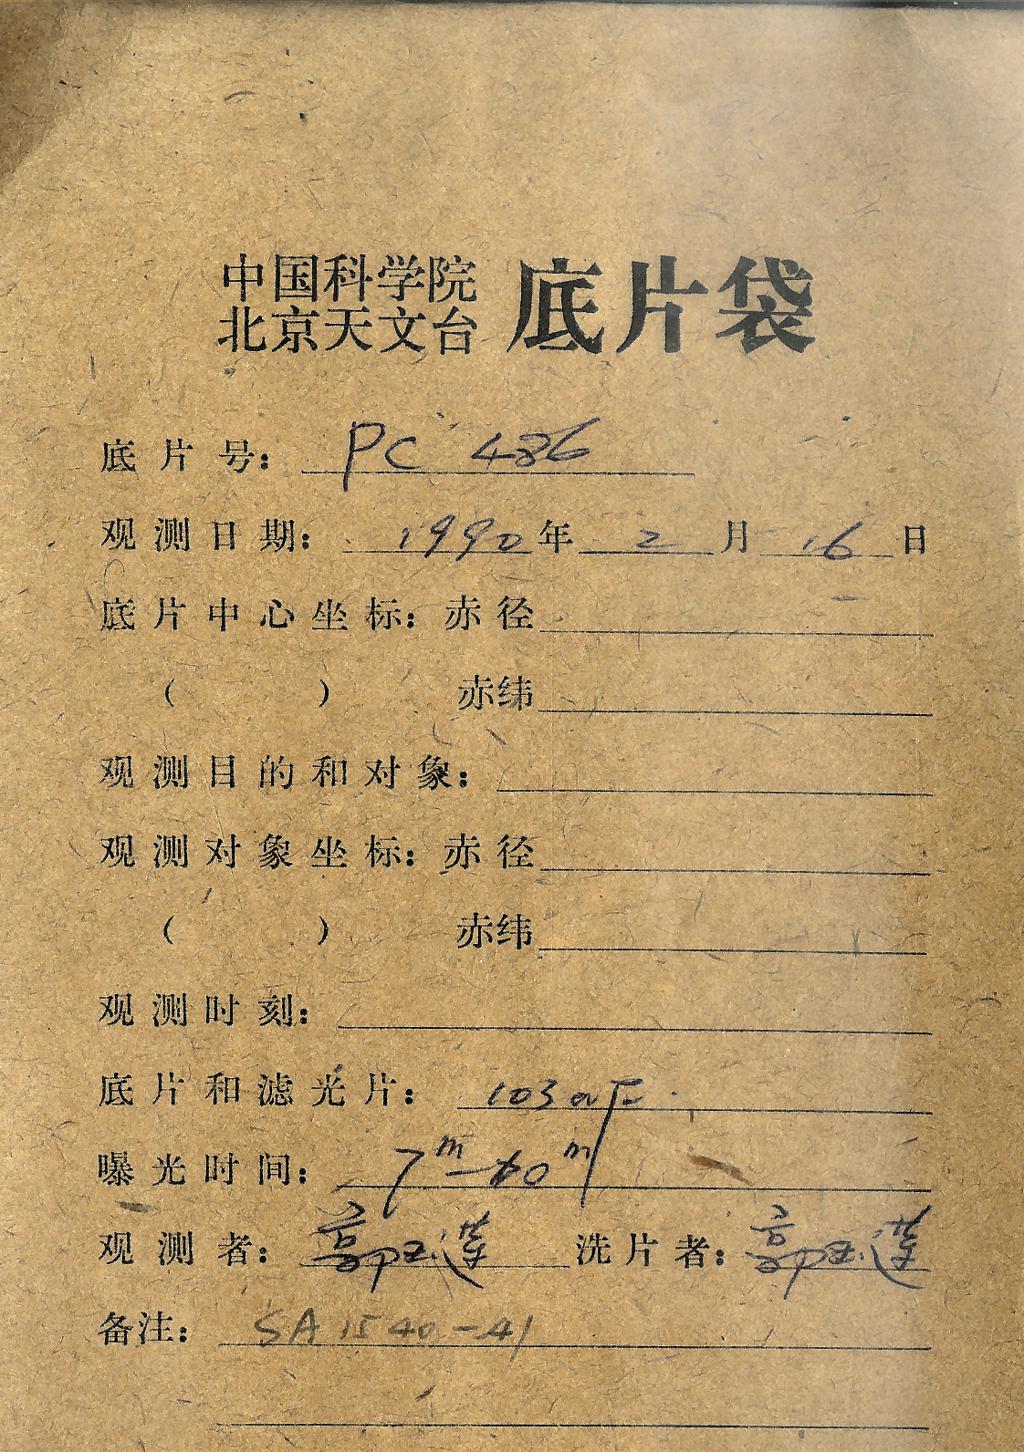 中国科学院
北京天文台 底片袋
底片号: PC 486
观测日期: 1990年 2 月 16 日
底片中心坐标: 赤径
( ) 赤纬
观测目的和对象:
观测对象坐标: 赤径
( ) 赤纬
观测时刻:
底片和滤光片: 103aF
曝光时间: 7m 0m
观测者: 郭玉莲 洗片者: 郭玉莲
备注: SA 1540-41